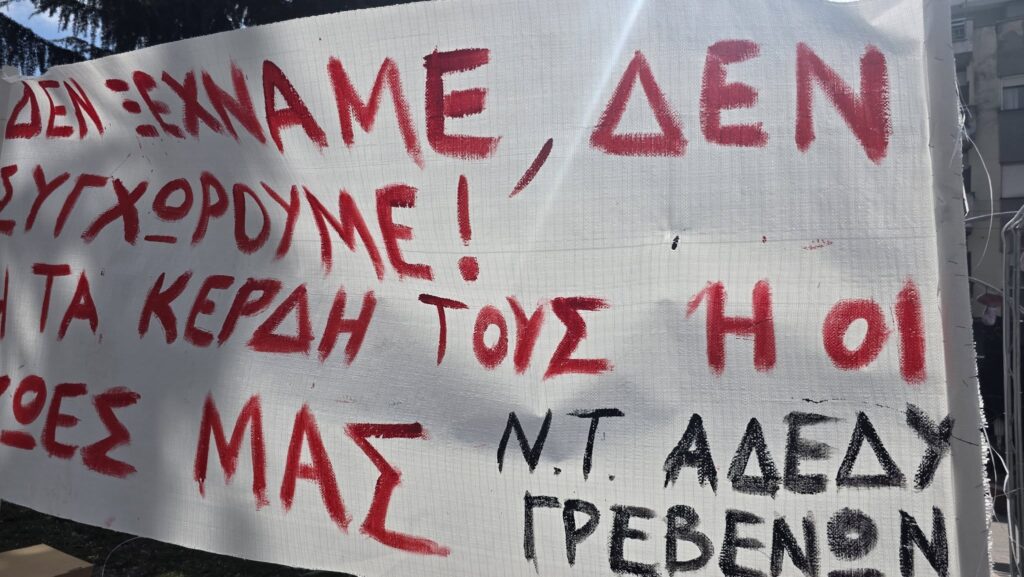 ΔΕΝ ΞΕΧΝΑΜΕ, ΔΕΝ
ΣΥΓΧΩΡΟΥΜΕ!
Η ΤΑ ΚΕΡΔΗ ΤΟΥΣ Ή ΟΙ
ΖΩΕΣ ΜΑΣ
Ν.Τ. ΑΔΕΔΥ
ΓΡΕΒΕΝΩΝ